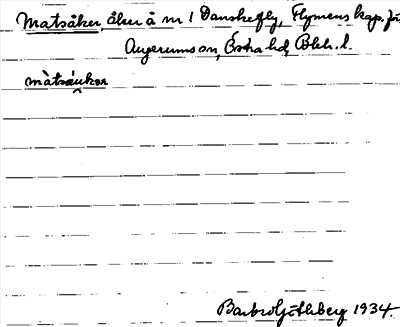 Matsåker, åker å nr 1 Danskefly, Flymens kap. fö
Augerums sn, Östra hd, Blek. l.
màtsáukor
Barbro Göthberg 1934.